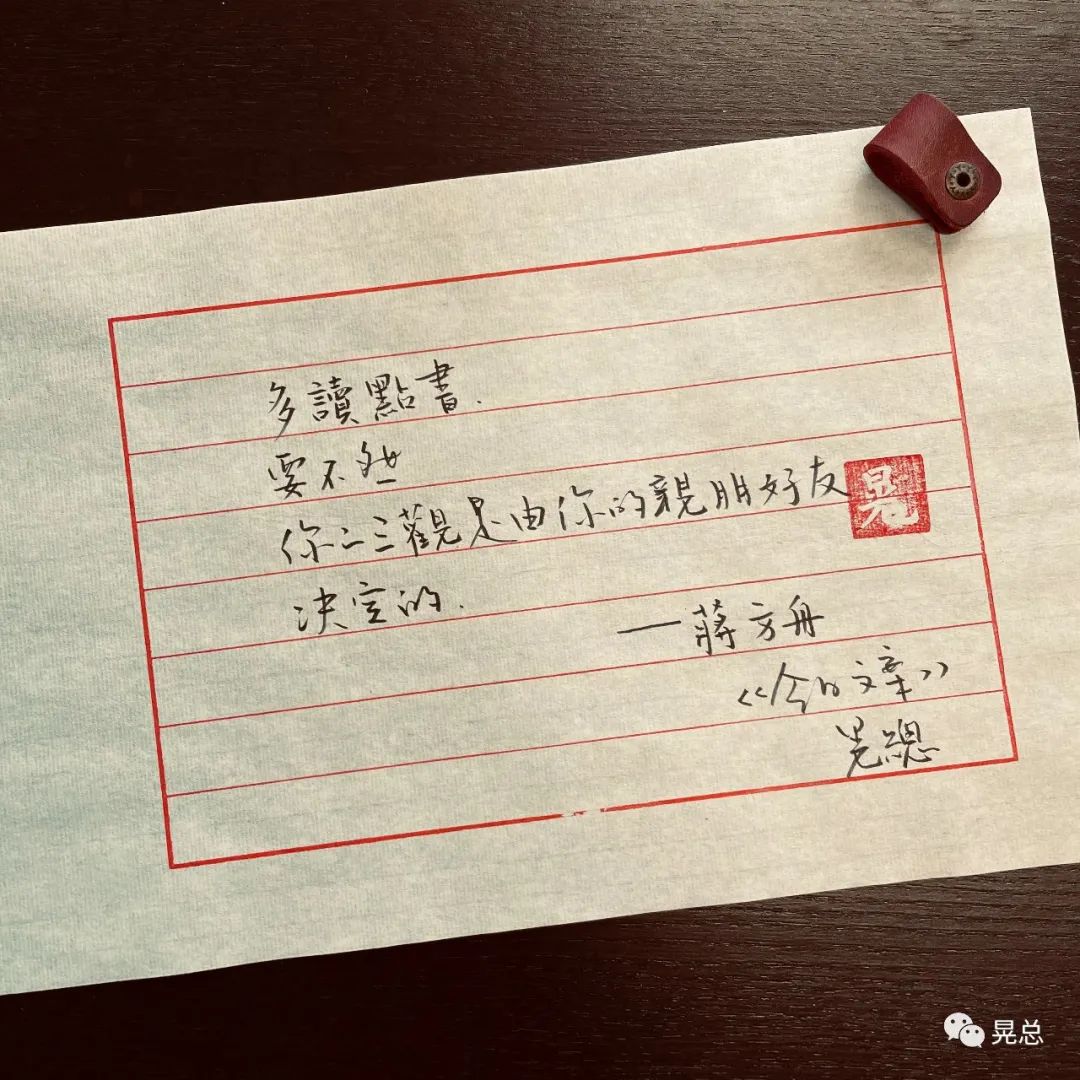 多讀點書.
要不然
你三觀是由你的親朋好友
决定的.
—蔣方舟
《今日文案》
晃總
晃
晃总